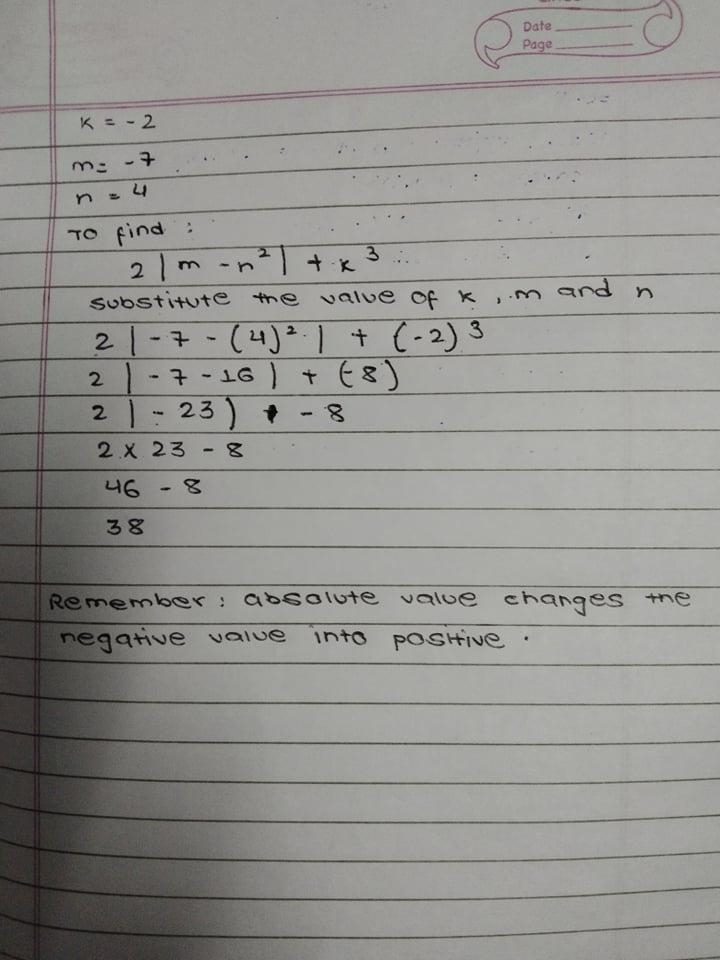 Date
Page
K = -2
m= -7
n = 4
TO find :
2 | m - n² | + k³
substitute the value of k , m and n
2 | -7 - (4)² | + (-2)³
2 | -7 -16 | + (-8)
2 | - 23 ) - 8
2 x 23 - 8
46 - 8
38
Remember : absolute value changes the
negative value into positive .